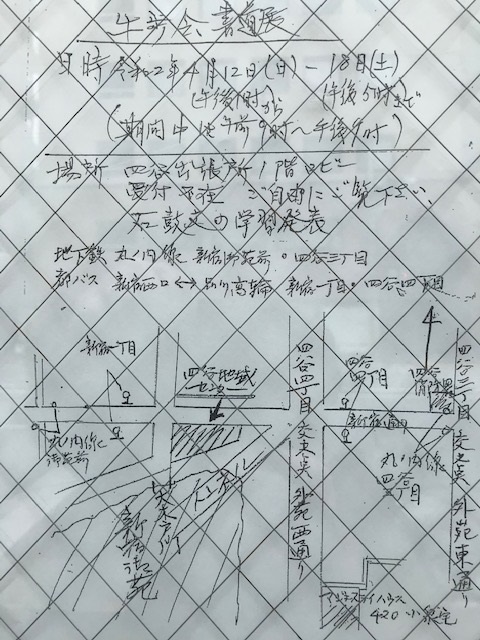 書道展
日時 令和2年4月12日(日)–18日(土)
(午後1時)から (午後5時)まで
(期間中は午前9時〜午後9時)
場所 四谷出張所1階ロビー
受付不在 ご自由にご覧下さい
石鼓文の学習発表
地下鉄 丸ノ内線 新宿御苑前。四谷三丁目
都バス 新宿西口↔品川高輪 新宿一丁目。四谷四丁目
新宿一丁目
四谷地域
四谷四丁目交差点 外苑西通り
四谷四丁目
四谷消防署
四谷三丁目交差点 外苑東通り
丸ノ内線
御苑前
新宿通り
丸ノ内線
四谷三丁目
トンネル
新宿御苑
420 小泉宅